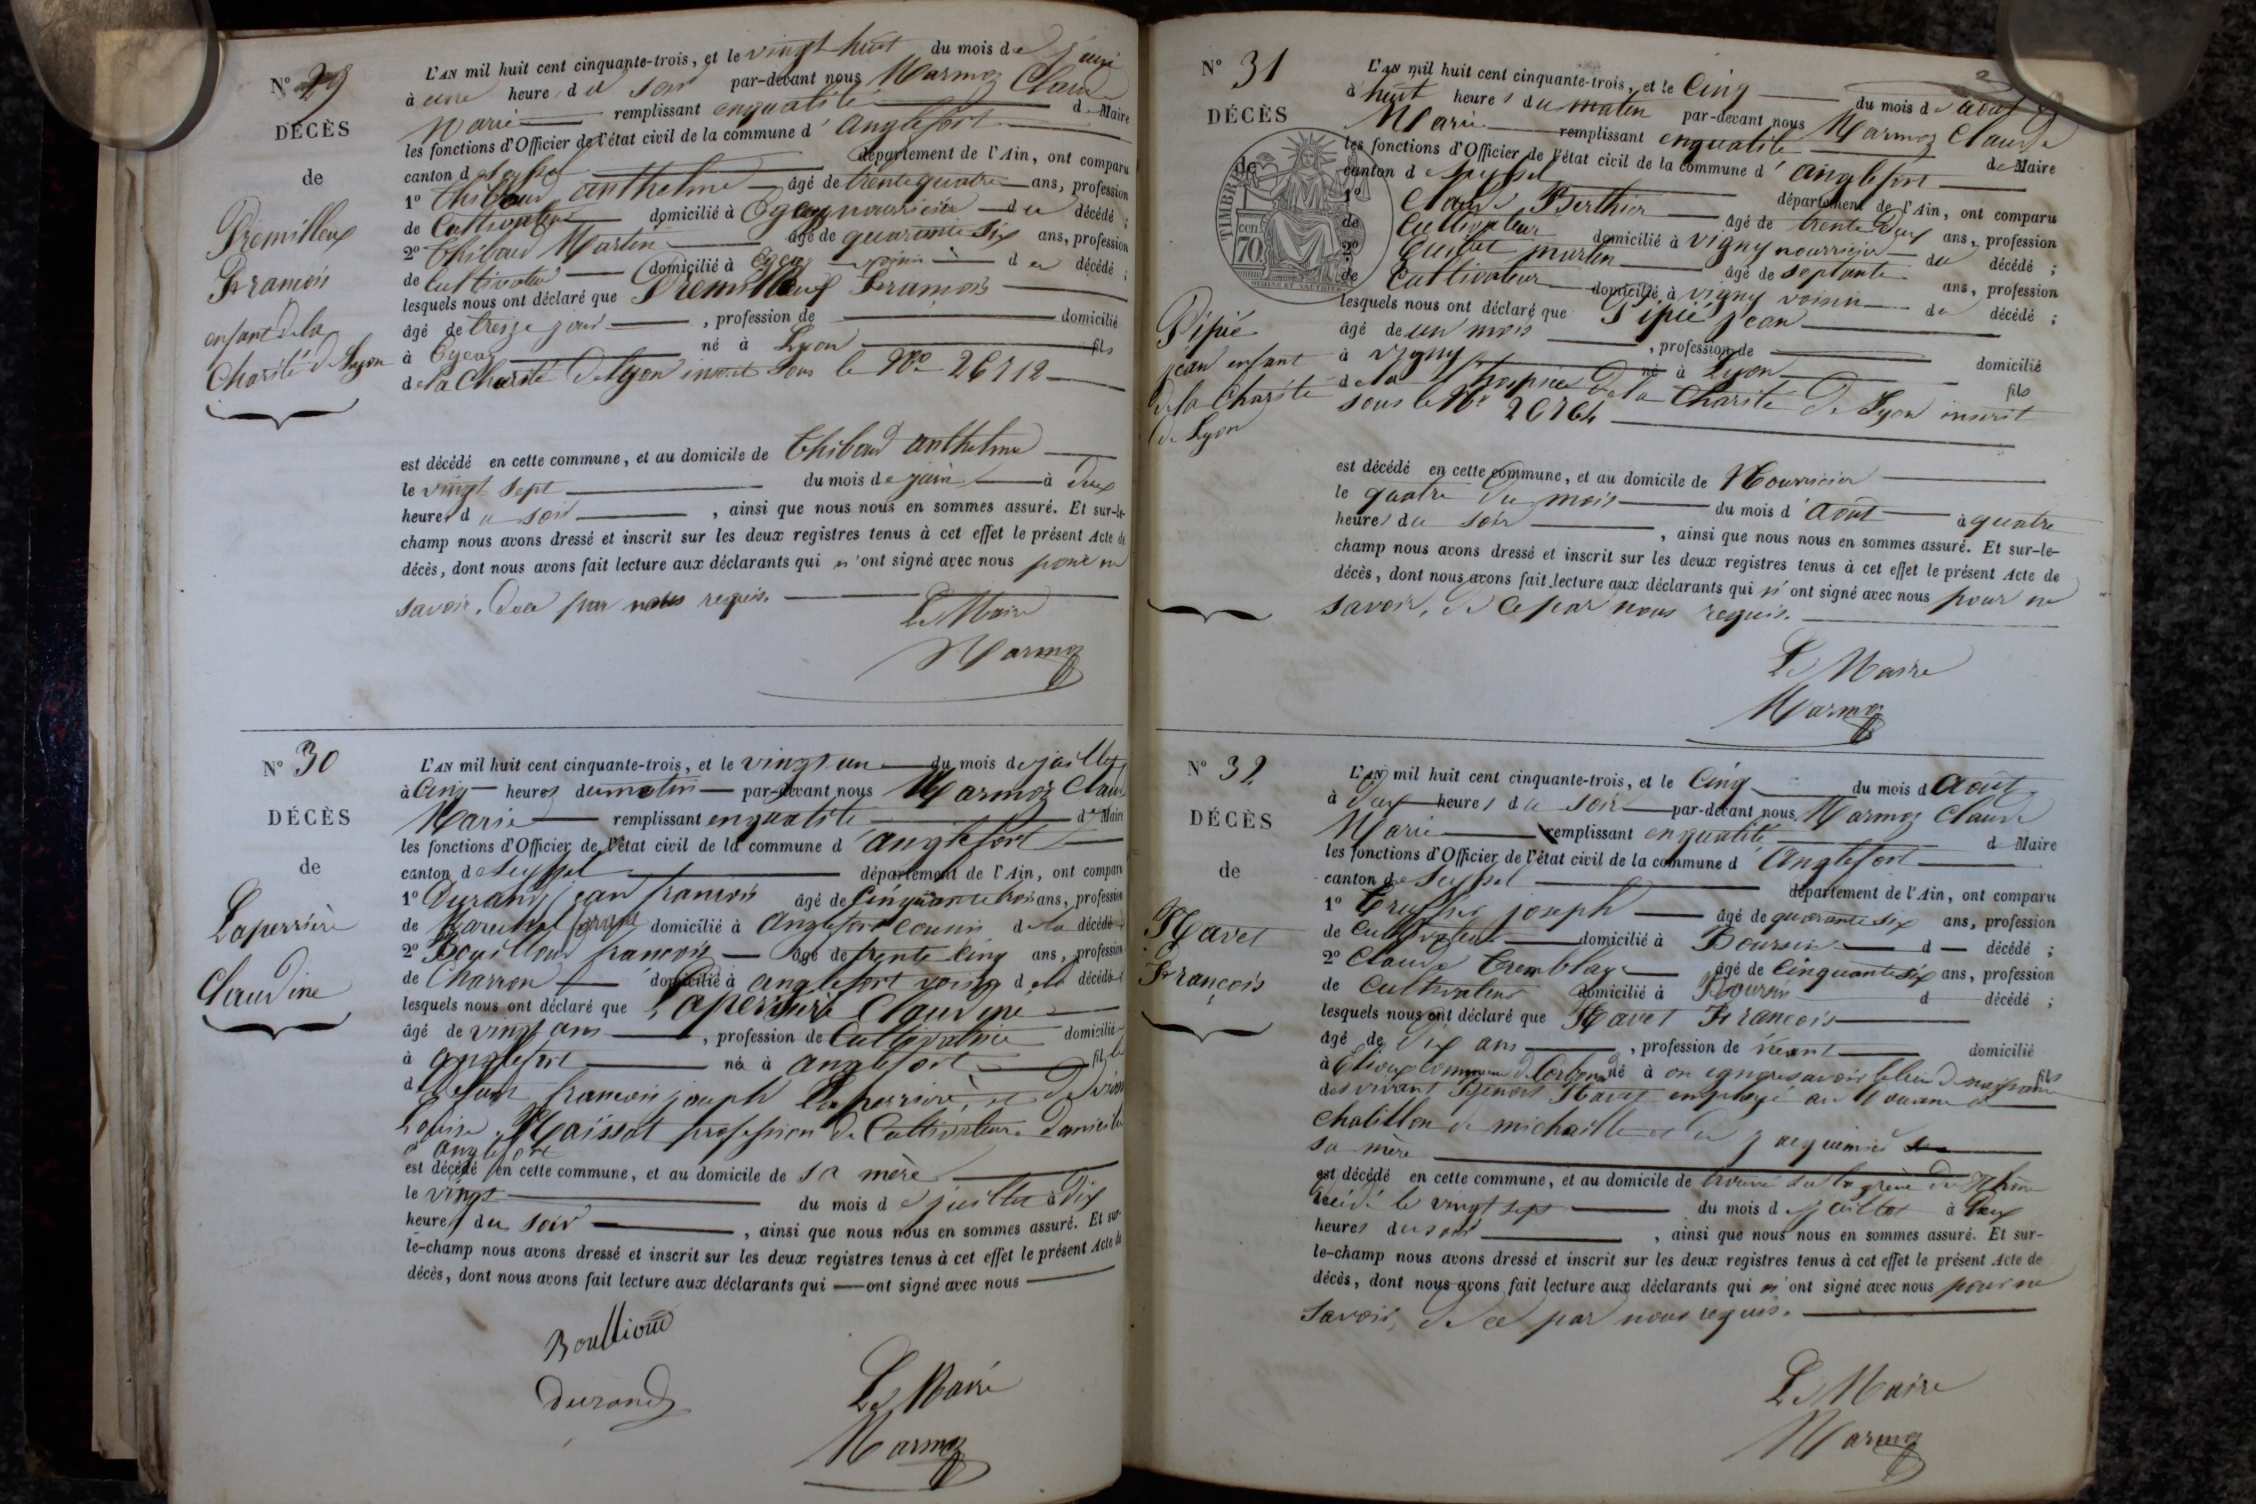 N° 29
DÉCÈS
de
Premilleux
François
enfant de la
Charité de Lyon
L'AN mil huit cent cinquante-trois, et le vingt huit du mois de juin
à une heure du soir par-devant nous Marmoz Claude
Marie remplissant enqualité de Maire
les fonctions d'Officier de l'état civil de la commune d'anglefort
canton de Seyssel département de l'Ain, ont comparu
1° Thibaud anthelme âgé de trente quatre ans, profession
de Cultivateur domicilié à nourricier du décédé ;
2° Thibaud Martin âgé de quarante Six ans, profession
de Cultivateur domicilié à voisin du décédé ;
lesquels nous ont déclaré que Premilleux François
âgé de treize jour , profession de domicilié
à né à Lyon fils
de la Charité de lyon inscrit Sous le N° 26712
est décédé en cette commune, et au domicile de Thibaud anthelme
le vingt sept du mois de juin à deux
heures du soir , ainsi que nous nous en sommes assuré. Et sur-le-
champ nous avons dressé et inscrit sur les deux registres tenus à cet effet le présent Acte de
décès, dont nous avons fait lecture aux déclarants qui n'ont signé avec nous pour ne
savoir, de ce par nous requis.
Le Maire
Marmoz
N° 30
DÉCÈS
de
Laperrière
Claudine
L'AN mil huit cent cinquante-trois, et le vingt un du mois de juillet
à Cinq heures du matin par-devant nous Marmoz Claude
Marie remplissant enqualité de Maire
les fonctions d'Officier de l'état civil de la commune d'anglefort
canton de Seyssel département de l'Ain, ont comparu
1° Durand jean francois âgé de Cinquante trois ans, profession
de Marechal domicilié à Anglefort cousin de la décédé
2° Bouilloud francois âgé de trente Cinq ans, profession
de Charron domicilié à anglefort voisin de la décédé
lesquels nous ont déclaré que Laperriere Claudine
âgé de vingt ans , profession de Cultivatrice domicilié
à anglefort née à anglefort fille
de defunt francois joseph Laperriere, et de
Louise Maissat profession de Cultivateur domicilié
à Anglefort
est décédé en cette commune, et au domicile de sa mère
le vingt du mois de juillet à dix
heures du soir , ainsi que nous nous en sommes assuré. Et sur-
le-champ nous avons dressé et inscrit sur les deux registres tenus à cet effet le présent Acte de
décès, dont nous avons fait lecture aux déclarants qui ont signé avec nous
Boullioud
durand
Le Maire
Marmoz
N° 31
DÉCÈS
de
TIMBRE
cen.
70.
Pipié
jean enfant
de la Charité
de Lyon
L'AN mil huit cent cinquante-trois, et le Cinq du mois d'aout
à huit heures du matin par-devant nous Marmoz Claude
Marie remplissant enqualité de Maire
les fonctions d'Officier de l'état civil de la commune d'anglefort
canton de Seyssel département de l'Ain, ont comparu
1° Claude Berthier âgé de trente Deux ans, profession
de Cultivateur domicilié à vigny nourricier du décédé ;
2° martin âgé de septante ans, profession
de Cultivateur domicilié à vigny voisin du décédé ;
lesquels nous ont déclaré que Pipié jean
âgé de un mois , profession de domicilié
à vigny né à Lyon fils
de la hospice de la Charité de Lyon inscrit
sous le N° 26764
est décédé en cette commune, et au domicile de Nourricier
le quatre du mois du mois d'Aout à quatre
heures du soir , ainsi que nous nous en sommes assuré. Et sur-le-
champ nous avons dressé et inscrit sur les deux registres tenus à cet effet le présent Acte de
décès, dont nous avons fait lecture aux déclarants qui n'ont signé avec nous pour ne
savoir, de ce par nous requis.
Le Maire
Marmoz
N° 32
DÉCÈS
de
Mavet
François
L'AN mil huit cent cinquante-trois, et le Cinq du mois d'Août
à deux heures du soir par-devant nous Marmoz Claude
Marie remplissant enqualité de Maire
les fonctions d'Officier de l'état civil de la commune d'Anglefort
canton de Seyssel département de l'Ain, ont comparu
1° joseph âgé de quarante six ans, profession
de Cultivateur domicilié à d décédé ;
2° Claude Tremblay âgé de Cinquante six ans, profession
de Cultivateur domicilié à d décédé ;
lesquels nous ont déclaré que Mavet François
âgé de dix ans , profession de néant domicilié
à Commune de né à on ignore savoir le lieu de naissance fils
de vivant Benoit Mavet employé au Douane à
Chatillon de michaille et de jacquemier
sa mère
est décédé en cette commune, et au domicile de trouvé sur la grève du Rhône
décédé le vingt sept du mois de juillet à Deux
heures du soir , ainsi que nous nous en sommes assuré. Et sur-
le-champ nous avons dressé et inscrit sur les deux registres tenus à cet effet le présent Acte de
décès, dont nous avons fait lecture aux déclarants qui n'ont signé avec nous pour ne
savoir, de ce par nous requis.
Le Maire
Marmoz